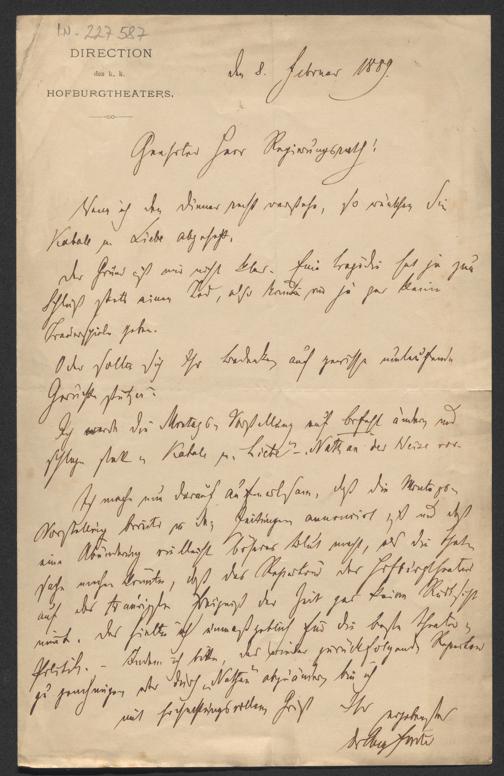 IN-227587
DIRECTION
des k. k.
HOFBURGTHEATERS.
den 8. Februar 1889.
Geehrter Herr Regierungsrath!
Wenn ich den Diener recht verstehe, so wünschen Sie
Kabale u. Liebe abgesetzt.
Der Grund ist mir nicht klar. Eine Tragödie hat ja zum
Schluß stets einen Tod, also könnten wir ja gar keine
Trauerspiele geben.
Oder sollte sich Ihr Bedenken auf gewisse umlaufende
Gerüchte stützen?
Ich werde die Montags-Vorstellung auf Befehl ändern und
schlage statt „Kabale u. Liebe“ – Nathan der Weise vor.
Ich mache nur darauf aufmerksam, daß die Montags-
Vorstellung bereits in den Zeitungen annoncirt ist und daß
eine Abänderung vielleicht böseres Blut macht, als die That-
sache machen könnte, daß das Repertoir des Hofburgtheaters
auf das traurigste Ereigniß der Zeit gar keine Rücksicht
nimmt. Das hielte ich unmaßgeblich für die beste Theater-
Politik. – Indem ich bitte, das wieder zurückfolgende Repertoir
zu genehmigen oder durch „Nathan“ abzuändern bin ich
mit hochachtungsvollem Gruß
Ihr ergebenster